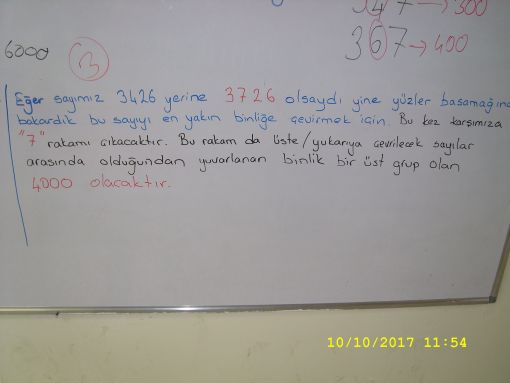 347 → 300
367 → 400
6000
3
Eğer sayımız 3426 yerine 3726 olsaydı yine yüzler basamağına
bakardık bu sayıyı en yakın binliğe çevirmek için. Bu kez karşımıza
"7" rakamı çıkacaktır. Bu rakam da üste/yukarıya çevrilecek sayılar
arasında olduğundan yuvarlanan binlik bir üst grup olan
4000 olacaktır.
10/10/2017 11:54